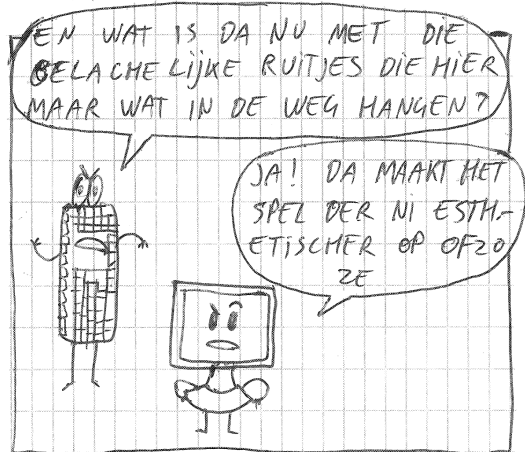 EN WAT IS DA NU MET DIE
BELACHELIJKE RUITJES DIE HIER
MAAR WAT IN DE WEG HANGEN?
JA! DA MAAKT HET
SPEL DER NI ESTH-
ETISCHER OP OFZO
ZE